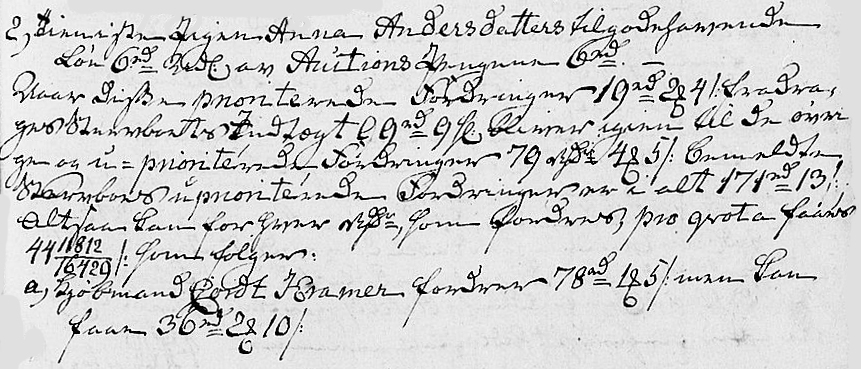 2, Tieniste Pigen Anna Andersdatters tilgodehavende
Løn 6rd, av Auctions Pengene 6rd.
Naar disse prioriterede Fordringer 19rd 2 $ 4 /: fradra,
ges Stervboets Indtægt 9rd 9 ß, bliver igien til de øvri
ge og u = prioriterede Fordringer 79 Rdr 4 $ 5 /: bemeldte
Stervboes uprioriterede Fordringer er i alt 171rd 13 /:
Altsaa kan for hver Rdr, som fordres, pro qvota faaes
44 11812/16429 /: som følger:
a, Kjøbmand Cordt Kramer fordrer 78rd 1 $ 5 /: men kan
faae 36rd 2 $ 10 /: